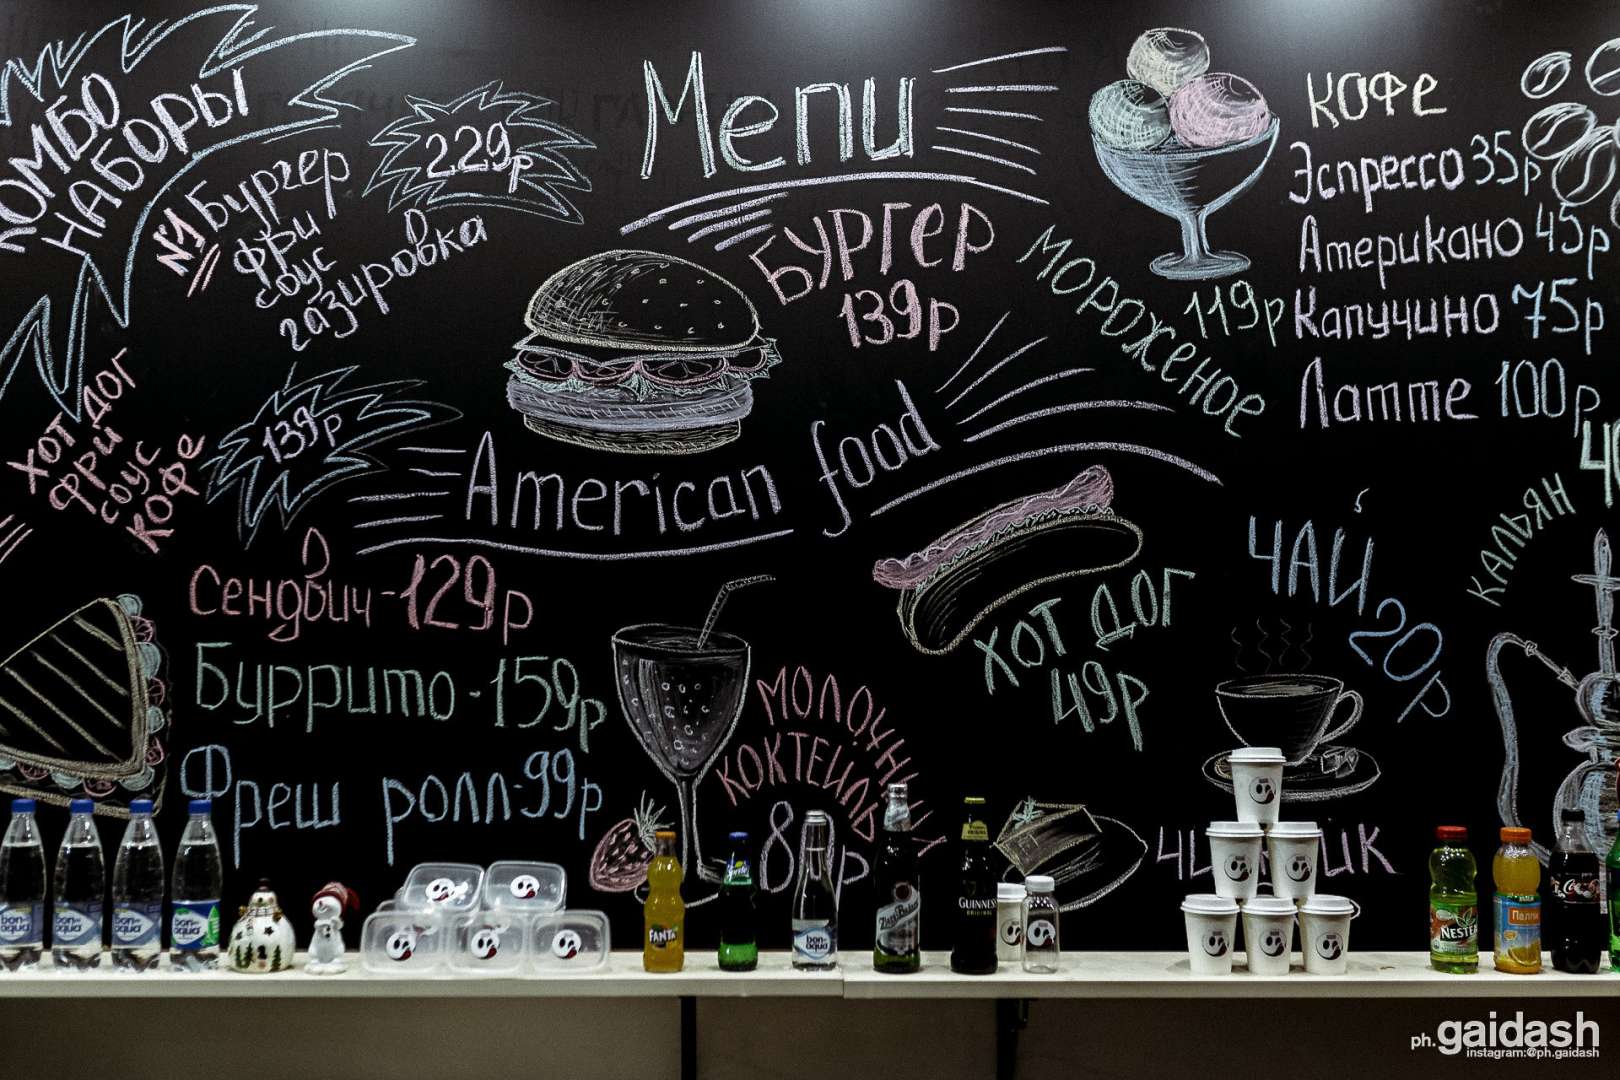 КОМБО
НАБОРЫ
№1 Бургер
фри
соус
газировка
229р
Menu
БУРГЕР
139р
МОРОЖЕНОЕ
119р
КОФЕ
Эспрессо 35р
Американо 45р
Капучино 75р
Латте 100р
ХОТ ДОГ
ФРИ
СОУС
КОФЕ
139р
American food
Сендвич-129р
Буррито-159р
Фреш ролл-99р
МОЛОЧНЫЙ
КОКТЕЙЛЬ
ХОТ ДОГ
49р
ЧАЙ
20р
КАЛЬЯН
bon
aqua
bon
aqua
bon
aqua
bon
aqua
FANTA
Sprite
bon
aqua
GUINNESS
ORIGINAL
NESTEA
Палпи
Coca-Cola
ph.gaidash
instagram:@ph.gaidash